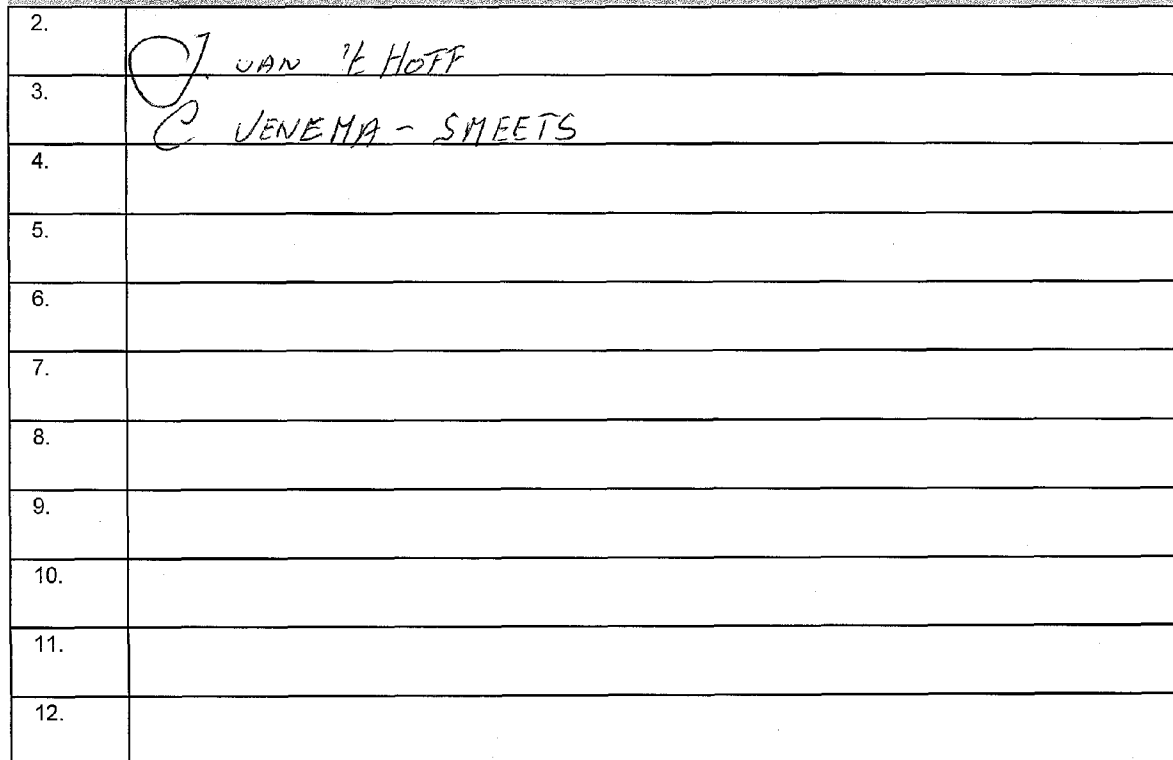 2.
J. VAN 't HOFF
3.
C VENEMA - SMEETS
4.
5.
6.
7.
8.
9.
10.
11.
12.